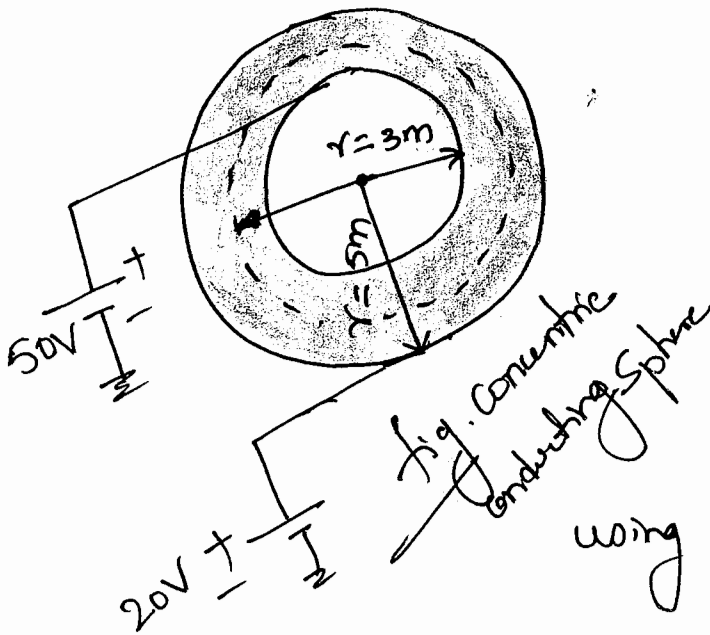 r=3m
r=5m
+
50V -
fig. Concentric
Conducting Sphere
20V +
-
using